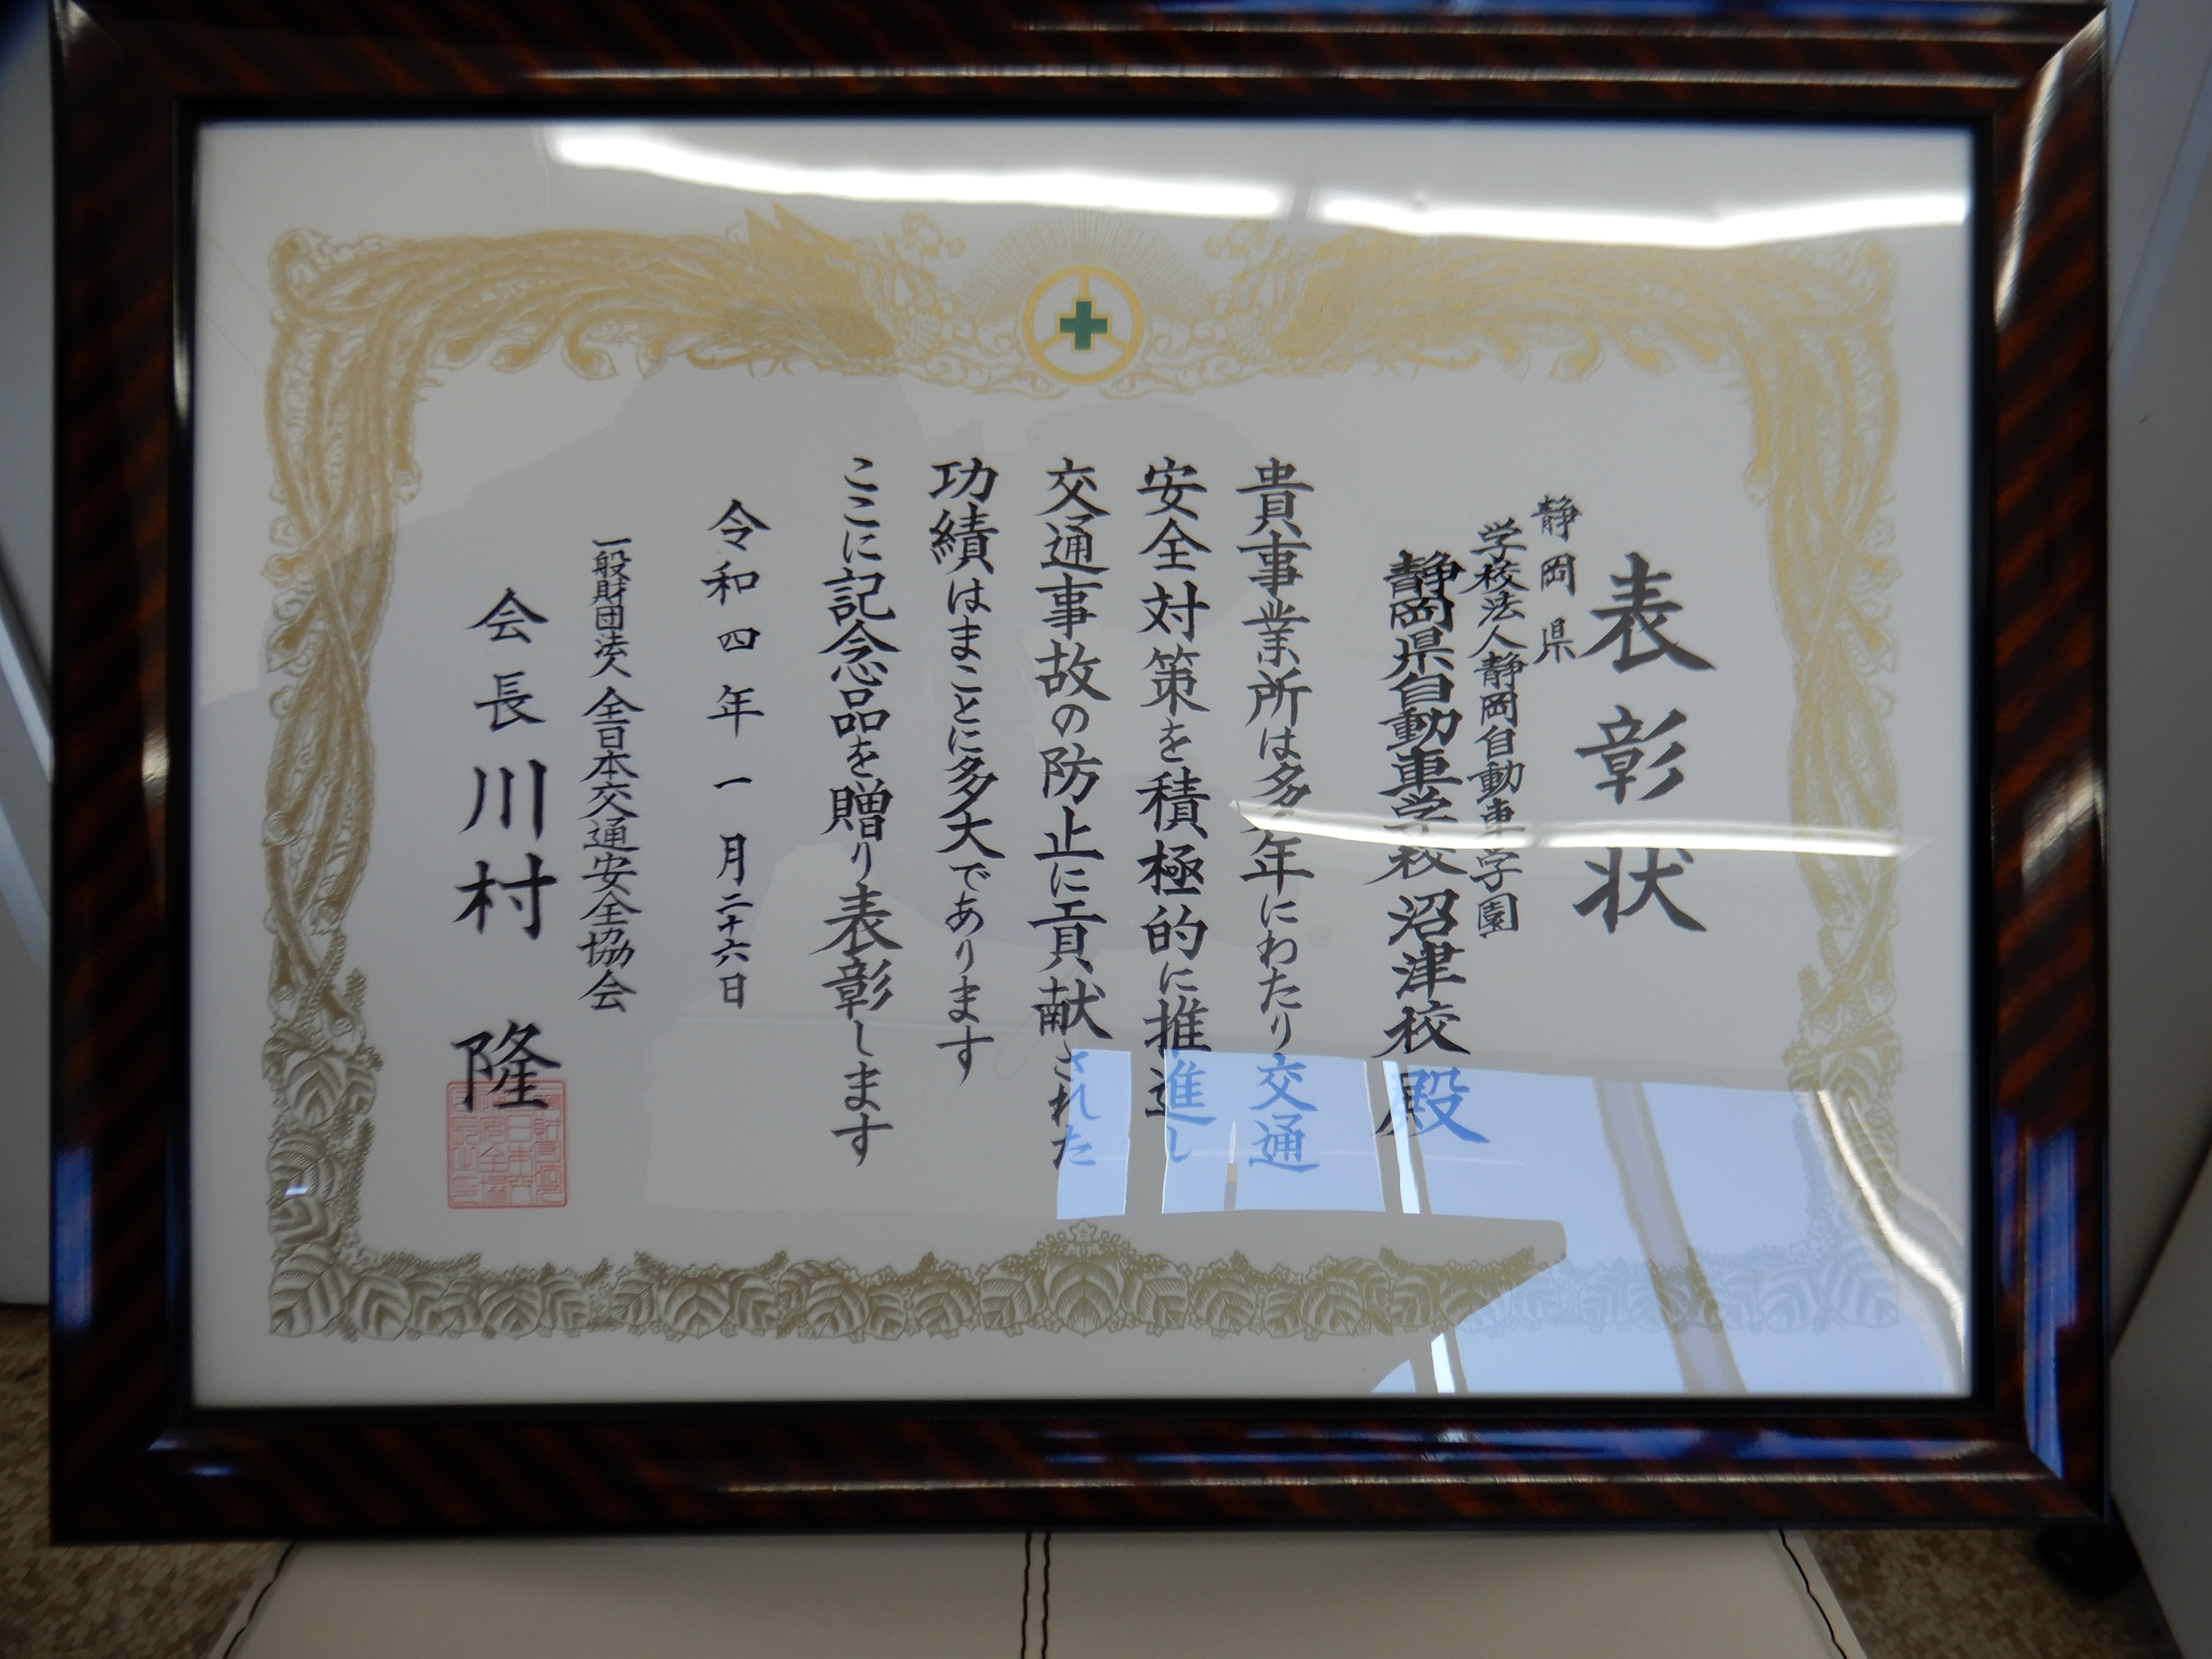 表彰状
静岡県
学校法人静岡自動車学園
静岡県自動車学校沼津校殿
貴事業所は多年にわたり交通
安全対策を積極的に推進し
交通事故の防止に貢献された
功績はまことに多大であります
ここに記念品を贈り表彰します
令和四年一月二十六日
一般財団法人全日本交通安全協会
会長川村隆